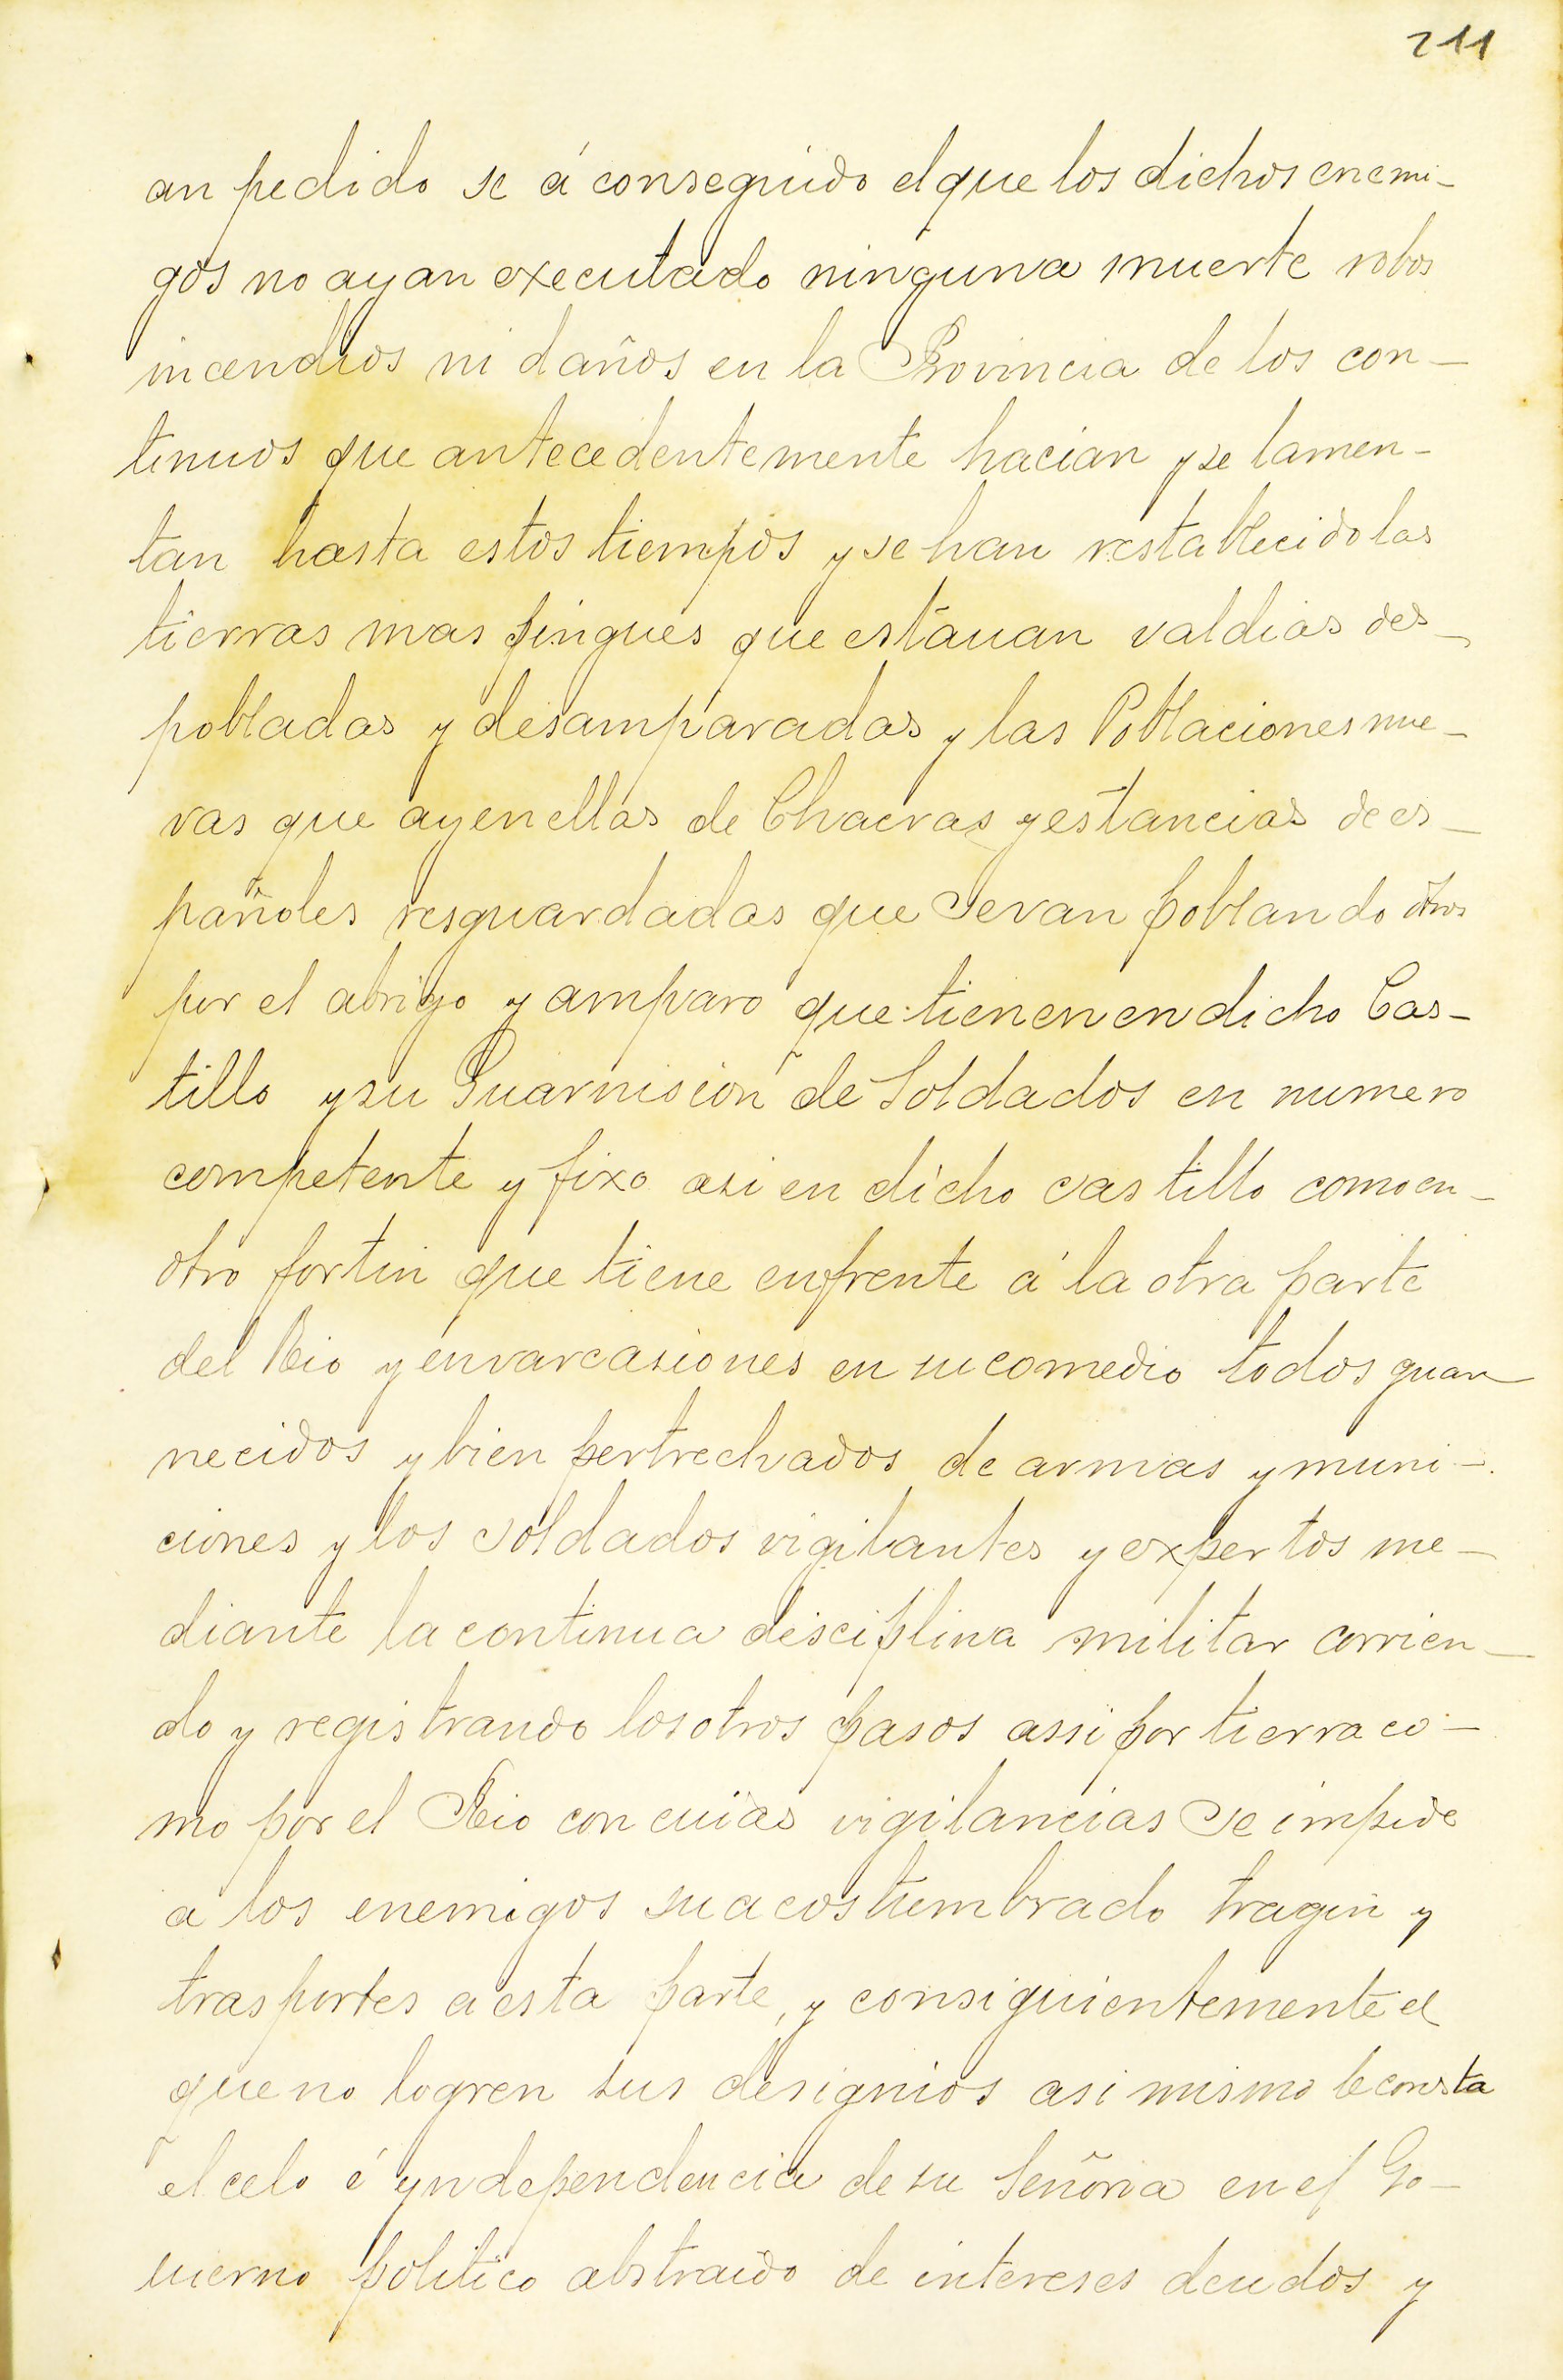 211
an pedido se á conseguido el que los dichos enemi-
gos no ayan executado ninguna muerte robos
incendios ni daños en la Provincia de los con-
tinuos que antecedentemente hacian y se lamen-
tan hasta estos tiempos y se han restablecido las
tierras mas pingues que estauan valdias des-
pobladas y desamparadas y las Poblaciones nue-
vas que ay en ellas de Chacras y estancias de es-
pañoles resguardadas que se van poblando otros
por el abrigo y amparo que tienen en dicho Cas-
tillo y su Guarnision de Soldados en numero
competente y fixo asi en dicho castillo como en-
otro fortin que tiene enfrente á la otra parte
del Rio y envarcasiones en su comedio todos guar
necidos y bien pertrechados de armas y muni-
ciones y los soldados vigilantes y expertos me-
diante la continua disciplina militar corrien-
do y registrando los otros pasos assi por tierra co-
mo por el Rio con cuias vigilancias se impide
a los enemigos su acostumbrado tragin y
trasportes a esta parte, y consiguientemente el
que no logren sus designios asi mismo le consta
el celo é yndependencia de su Señoria en el Go-
uierno politico abstraido de intereses deudos y